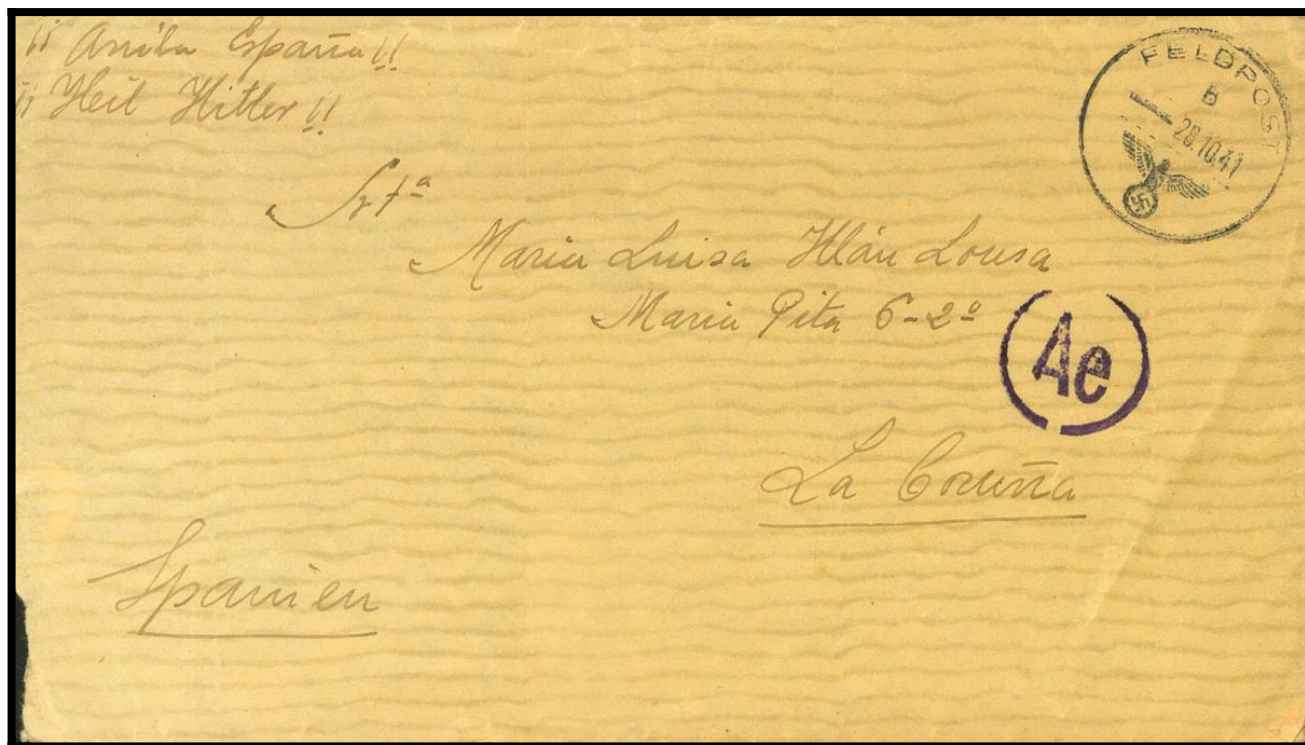 ¡¡ Arriba España !!
¡¡ Heil Hitler !!
FELDPOST
b
28.10.41
Srtª
Maria Luisa Illán Lousa
Maria Pita 6-2º
Ae
La Coruña
Spanien